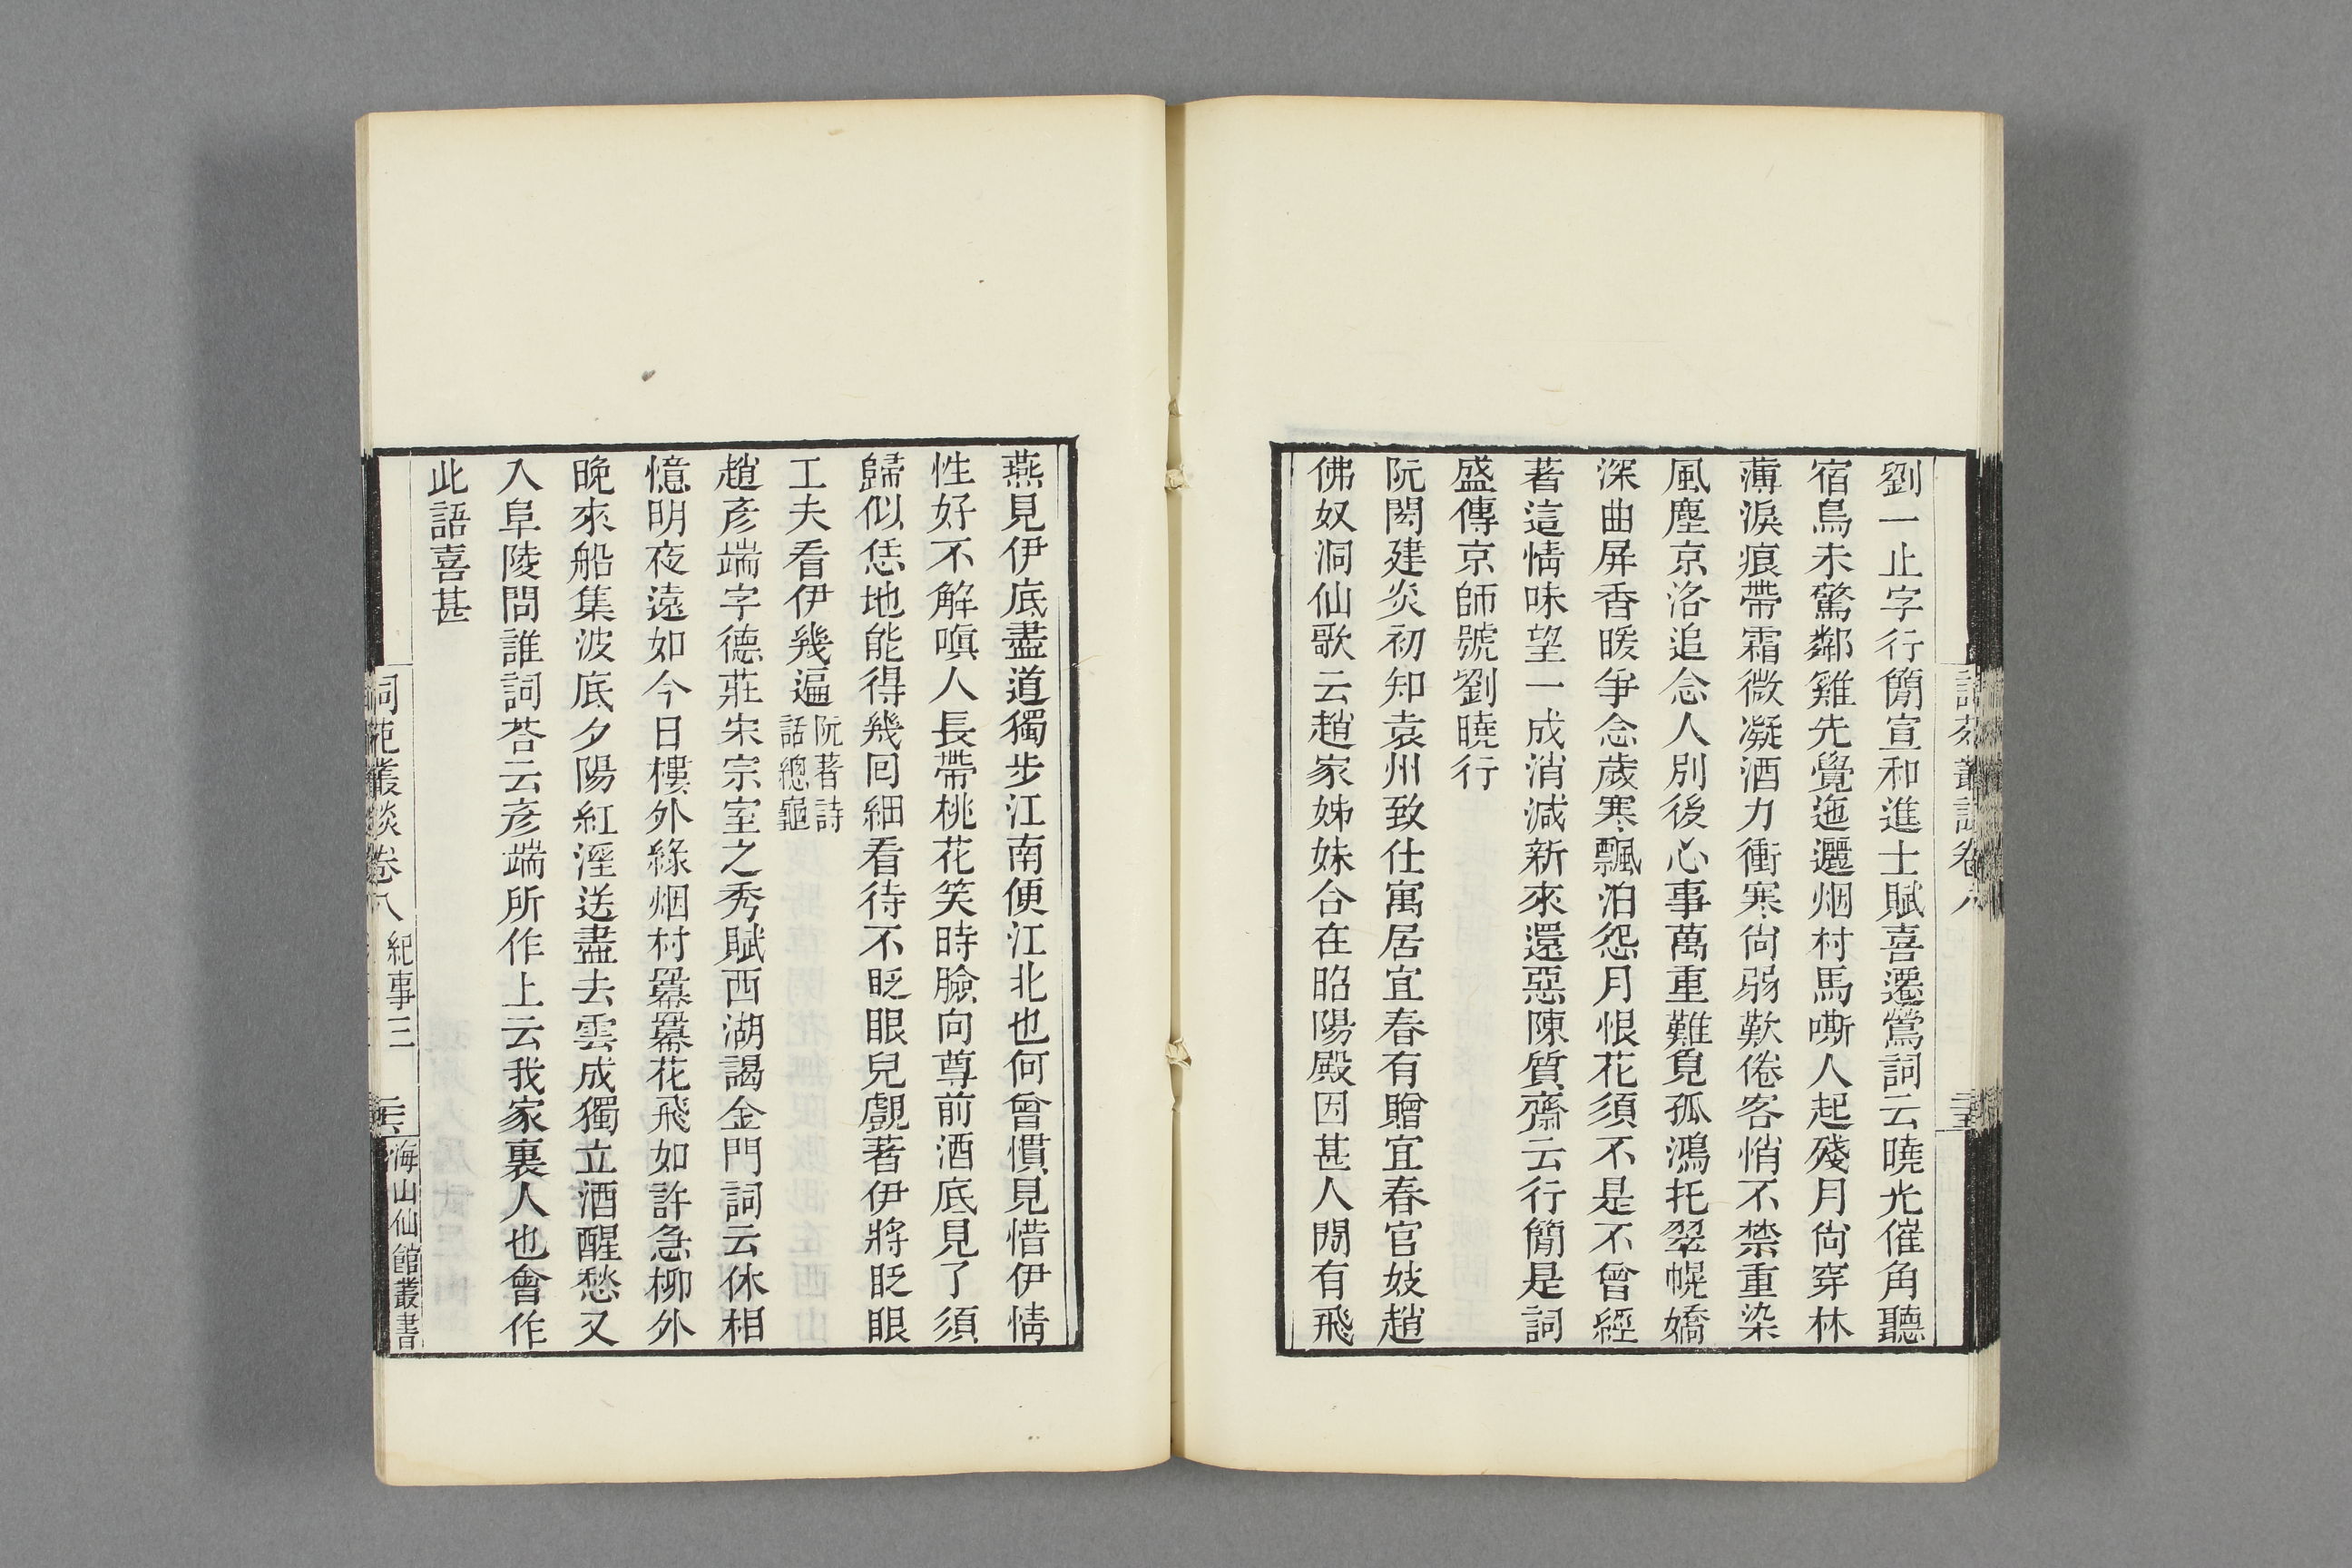 劉一止字行簡宣和進士賦喜遷鶯詞云曉光催角聽
宿鳥未驚鄰雞先覺迤邐烟村馬嘶人起殘月尙穿林
薄淚痕帶霜微凝酒力衝寒尙弱歎倦客悄不禁重染
風塵京洛追念人別後心事萬重難覓孤鴻托翠幌嬌
深曲屏香暖爭念歲寒飄泊怨月恨花須不是不曾經
著這情味望一成消減新來還惡陳質齋云行簡是詞
盛傳京師號劉曉行
阮閱建炎初知袁州致仕寓居宜春有贈宜春官妓趙
佛奴洞仙歌云趙家姊妹合在昭陽殿因甚人間有飛
燕見伊底盡道獨步江南便江北也何曾慣見惜伊情
性好不解嗔人長帶桃花笑時臉向尊前酒底見了須
歸似恁地能得幾回細看待不眨眼兒覷著伊將眨眼
工夫看伊幾遍阮著詩
話總龜
趙彥端字德莊宋宗室之秀賦西湖謁金門詞云休相
憶明夜遠如今日樓外綠烟村羃羃花飛如許急柳外
晚來船集波底夕陽紅溼送盡去雲成獨立酒醒愁又
入阜陵問誰詞荅云彥端所作上云我家裏人也會作
此語喜甚
詞苑叢談卷八 紀事三 海山仙館叢書